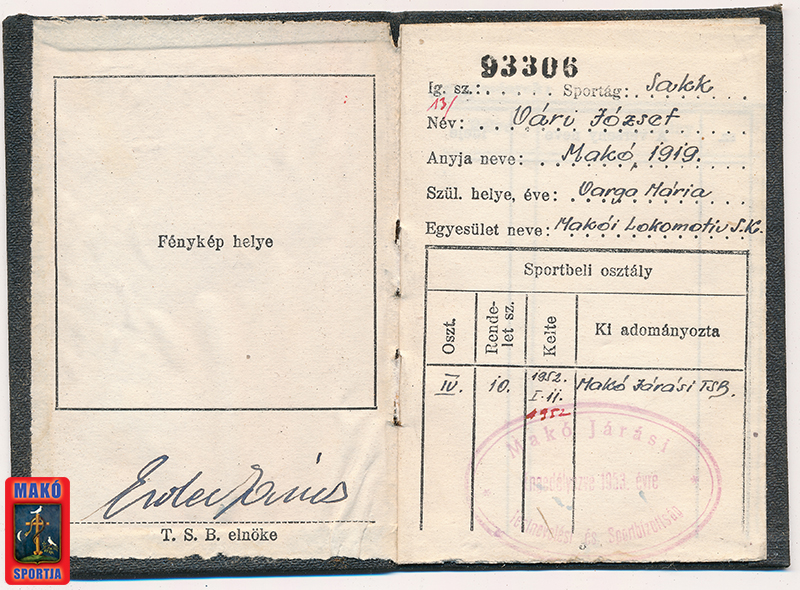 Fénykép helye
T. S. B. elnöke
MAKÓ
SPORTJA
93306
Ig. sz.: . . . . . Sportág: Sakk
13/
Név: Vári József
Anyja neve: Makó, 1919.
Szül. helye, éve: Varga Mária
Egyesület neve: Makói Lokomotiv S.K.
Sportbeli osztály
Oszt.
Rende-
let sz.
Kelte
Ki adományozta
IV. 10. 1952. Makó Járási TSB.
I. 11.
1952
Makó Járási
1953. évre
és Sportbizottság